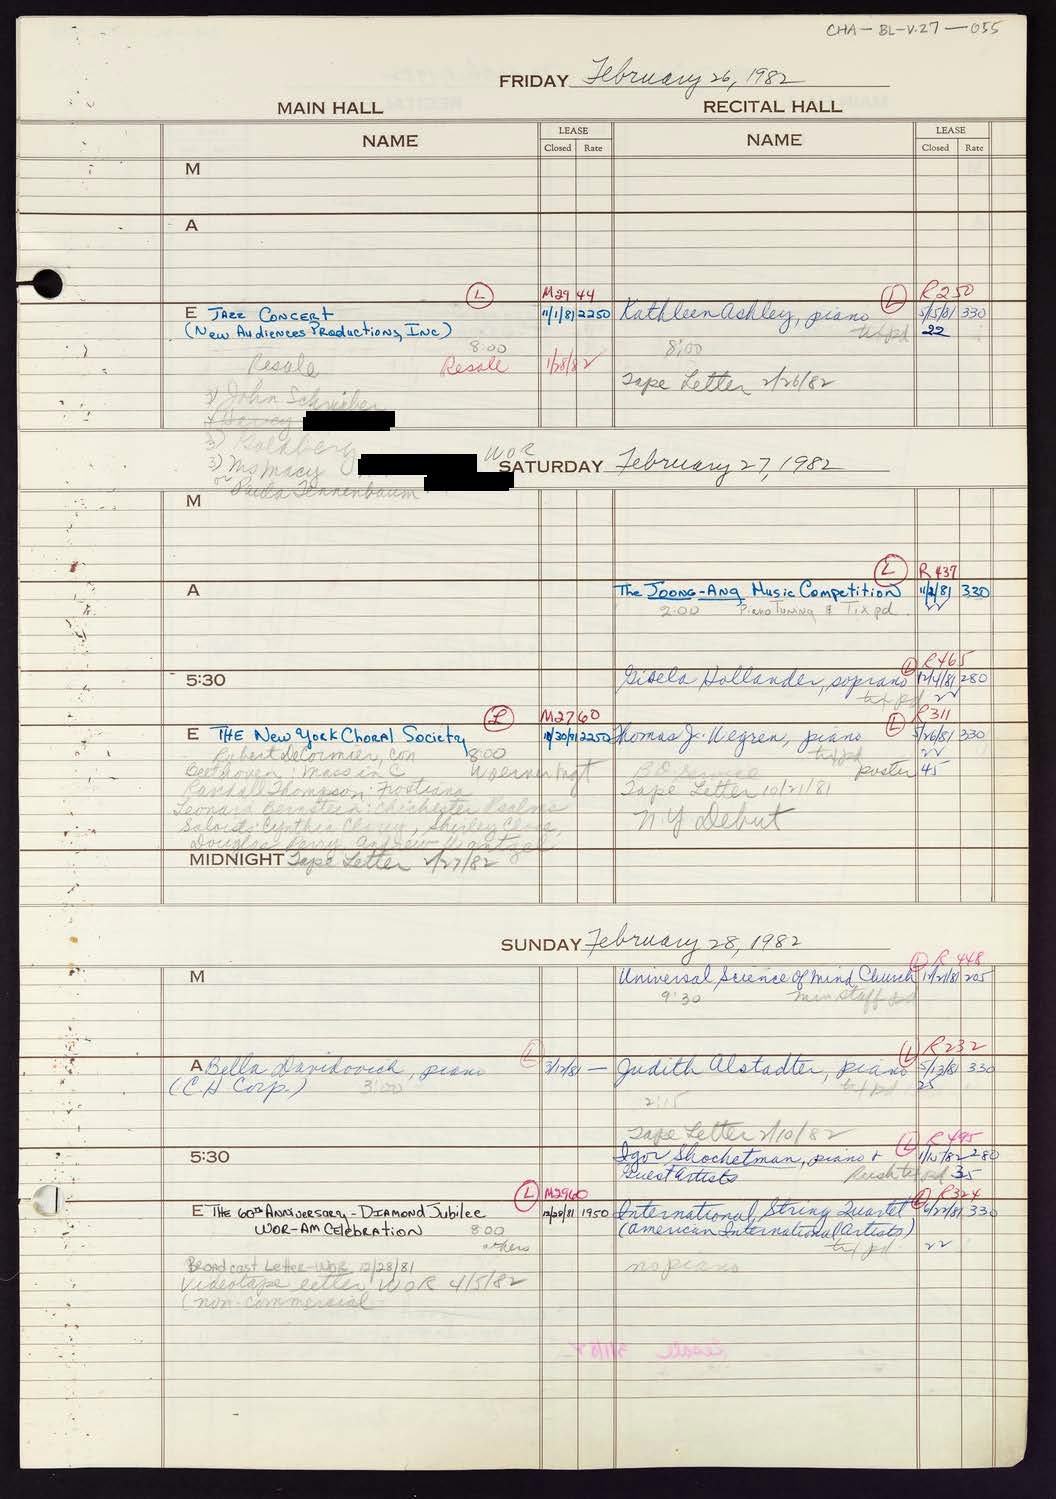 CHA-BL-V.27-055
FRIDAY February 26, 1982
MAIN HALL
RECITAL HALL
NAME
LEASE
Closed Rate
NAME
LEASE
Closed Rate
M
A
L M2944
E JAZZ CONCERT 11/1/81 2250
(New Audiences Productions, Inc)
8:00
Resale Resale 1/28/82
John Schreiber
3) Goldberg
3) Ms Macy WOR
or Paula Tennenbaum
L R250
Kathleen Ashley, piano 5/15/81 330
tix pd 22
8:00
Tape Letter 2/26/82
SATURDAY February 27, 1982
M
A
L R437
The JOONG-ANG Music Competition 11/2/81 330
2:00 Piano Tuning & Tix pd.
5:30
L R465
Gisela Hollander, soprano 12/4/81 280
tix pd 22
L M2760
E THE New York Choral Society 10/30/81 2250
Robert DeCormier, con 8:00
Beethoven: Mass in C
Randall Thompson: Frostiana
Leonard Bernstein: Chichester Psalms
Soloists: Cynthia Clarey, Shirley Close,
Douglas Perry, Andrew Wentzel
MIDNIGHT Tape Letter 2/27/82
L R311
Thomas J. Wegren, piano 5/26/81 330
tix pd 22
poster 45
Tape Letter 10/21/81
N.Y. Debut
SUNDAY February 28, 1982
M
L R448
Universal Science of Mind Church 11/21/81 205
9:30 min staff pd
L
A Bella Davidovich, piano 3/12/81 —
(C H Corp.) 3:00
L R232
Judith Alstadter, piano 5/13/81 330
tix pd 25
2:15
Tape Letter 2/10/82
5:30
L R495
Igor Shochetman, piano + 1/15/82 280
Guest Artists Rush tix pd 35
L M2960
E THE 60th ANNIVERSARY - DIAMOND Jubilee 12/28/81 1950
WOR-AM CELEBRATION 8:00
others
Broadcast Letter-WOR 12/28/81
Videotape letter WOR 4/5/82
(non-commercial
L R324
International String Quartet 6/22/81 330
(American International Artists)
tix pd 22
no piano